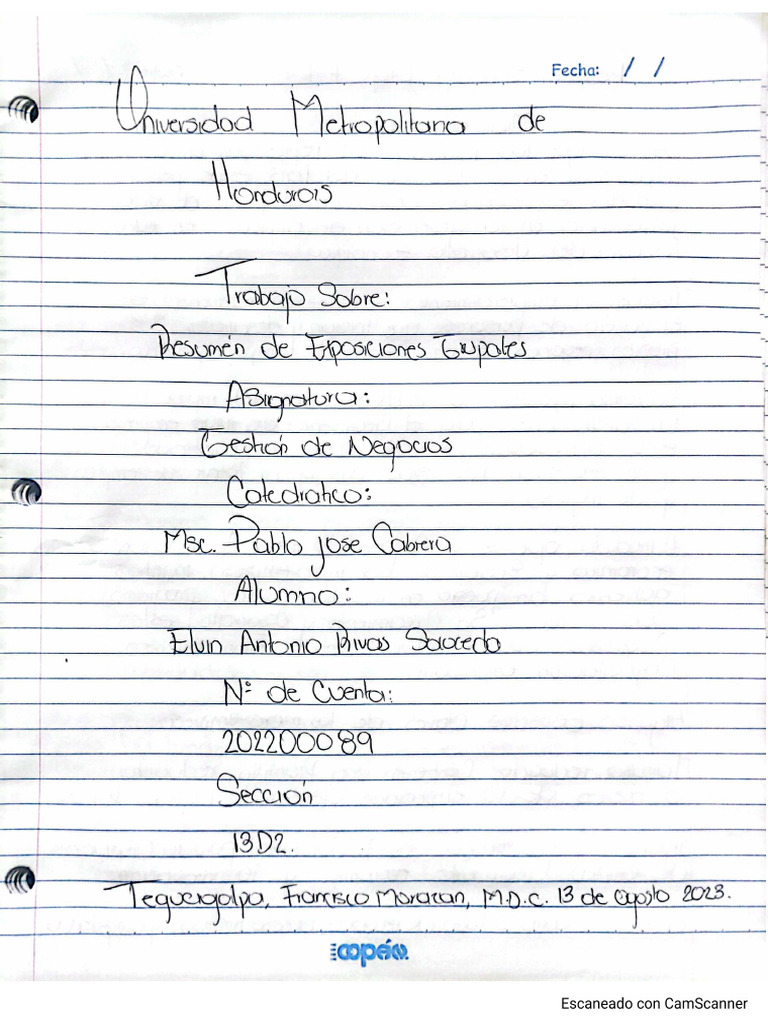 Fecha: / /
Universidad Metropolitana de
Honduras
Trabajo Sobre:
Resumén de Exposiciones Grupales
Asignatura:
Gestión de Negocios
Catedratico:
Msc. Pablo Jose Cabrera
Alumno:
Elvin Antonio Rivas Saucedo
N° de Cuenta:
202200089
Sección
13D2.
Tegucigalpa, Francisco Morazan, M.D.C. 13 de agosto 2023.
copán
Escaneado con CamScanner